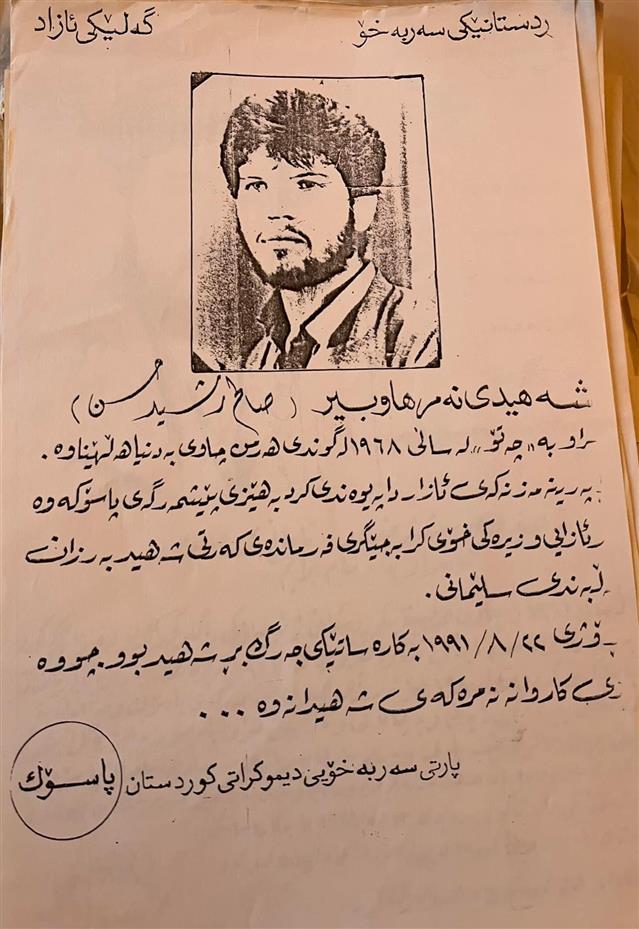 ردستانێکی سەربەخۆ گەلێکی ئازاد
شەهیدی نەمر هاوبیر (صالح رشید حسن)
راو بە «چەتۆ» لە ساڵی ١٩٦٨ لە گوندی هەرس چاوی بە دنیا هەڵهێناوە.
پەرینە مەزنەکەی ئازار دا پەیوەندی کرد بە هێزی پێشمەرگەی پاسۆکەوە
رئازایی و زیرەکی خۆی کرا بە جێگری فەرماندەی کەرتی شەهید بەرزان
ڵبەندی سلێمانی.
ڕۆژی ٢٢/٨/١٩٩١ بە کارەساتێکی جەرگ بڕ شەهید بوو. چووە
ی کاروانە نەمرەکەی شەهیدانەوە ...
پارتی سەربەخۆیی دیموکراتی کوردستان پاسۆك